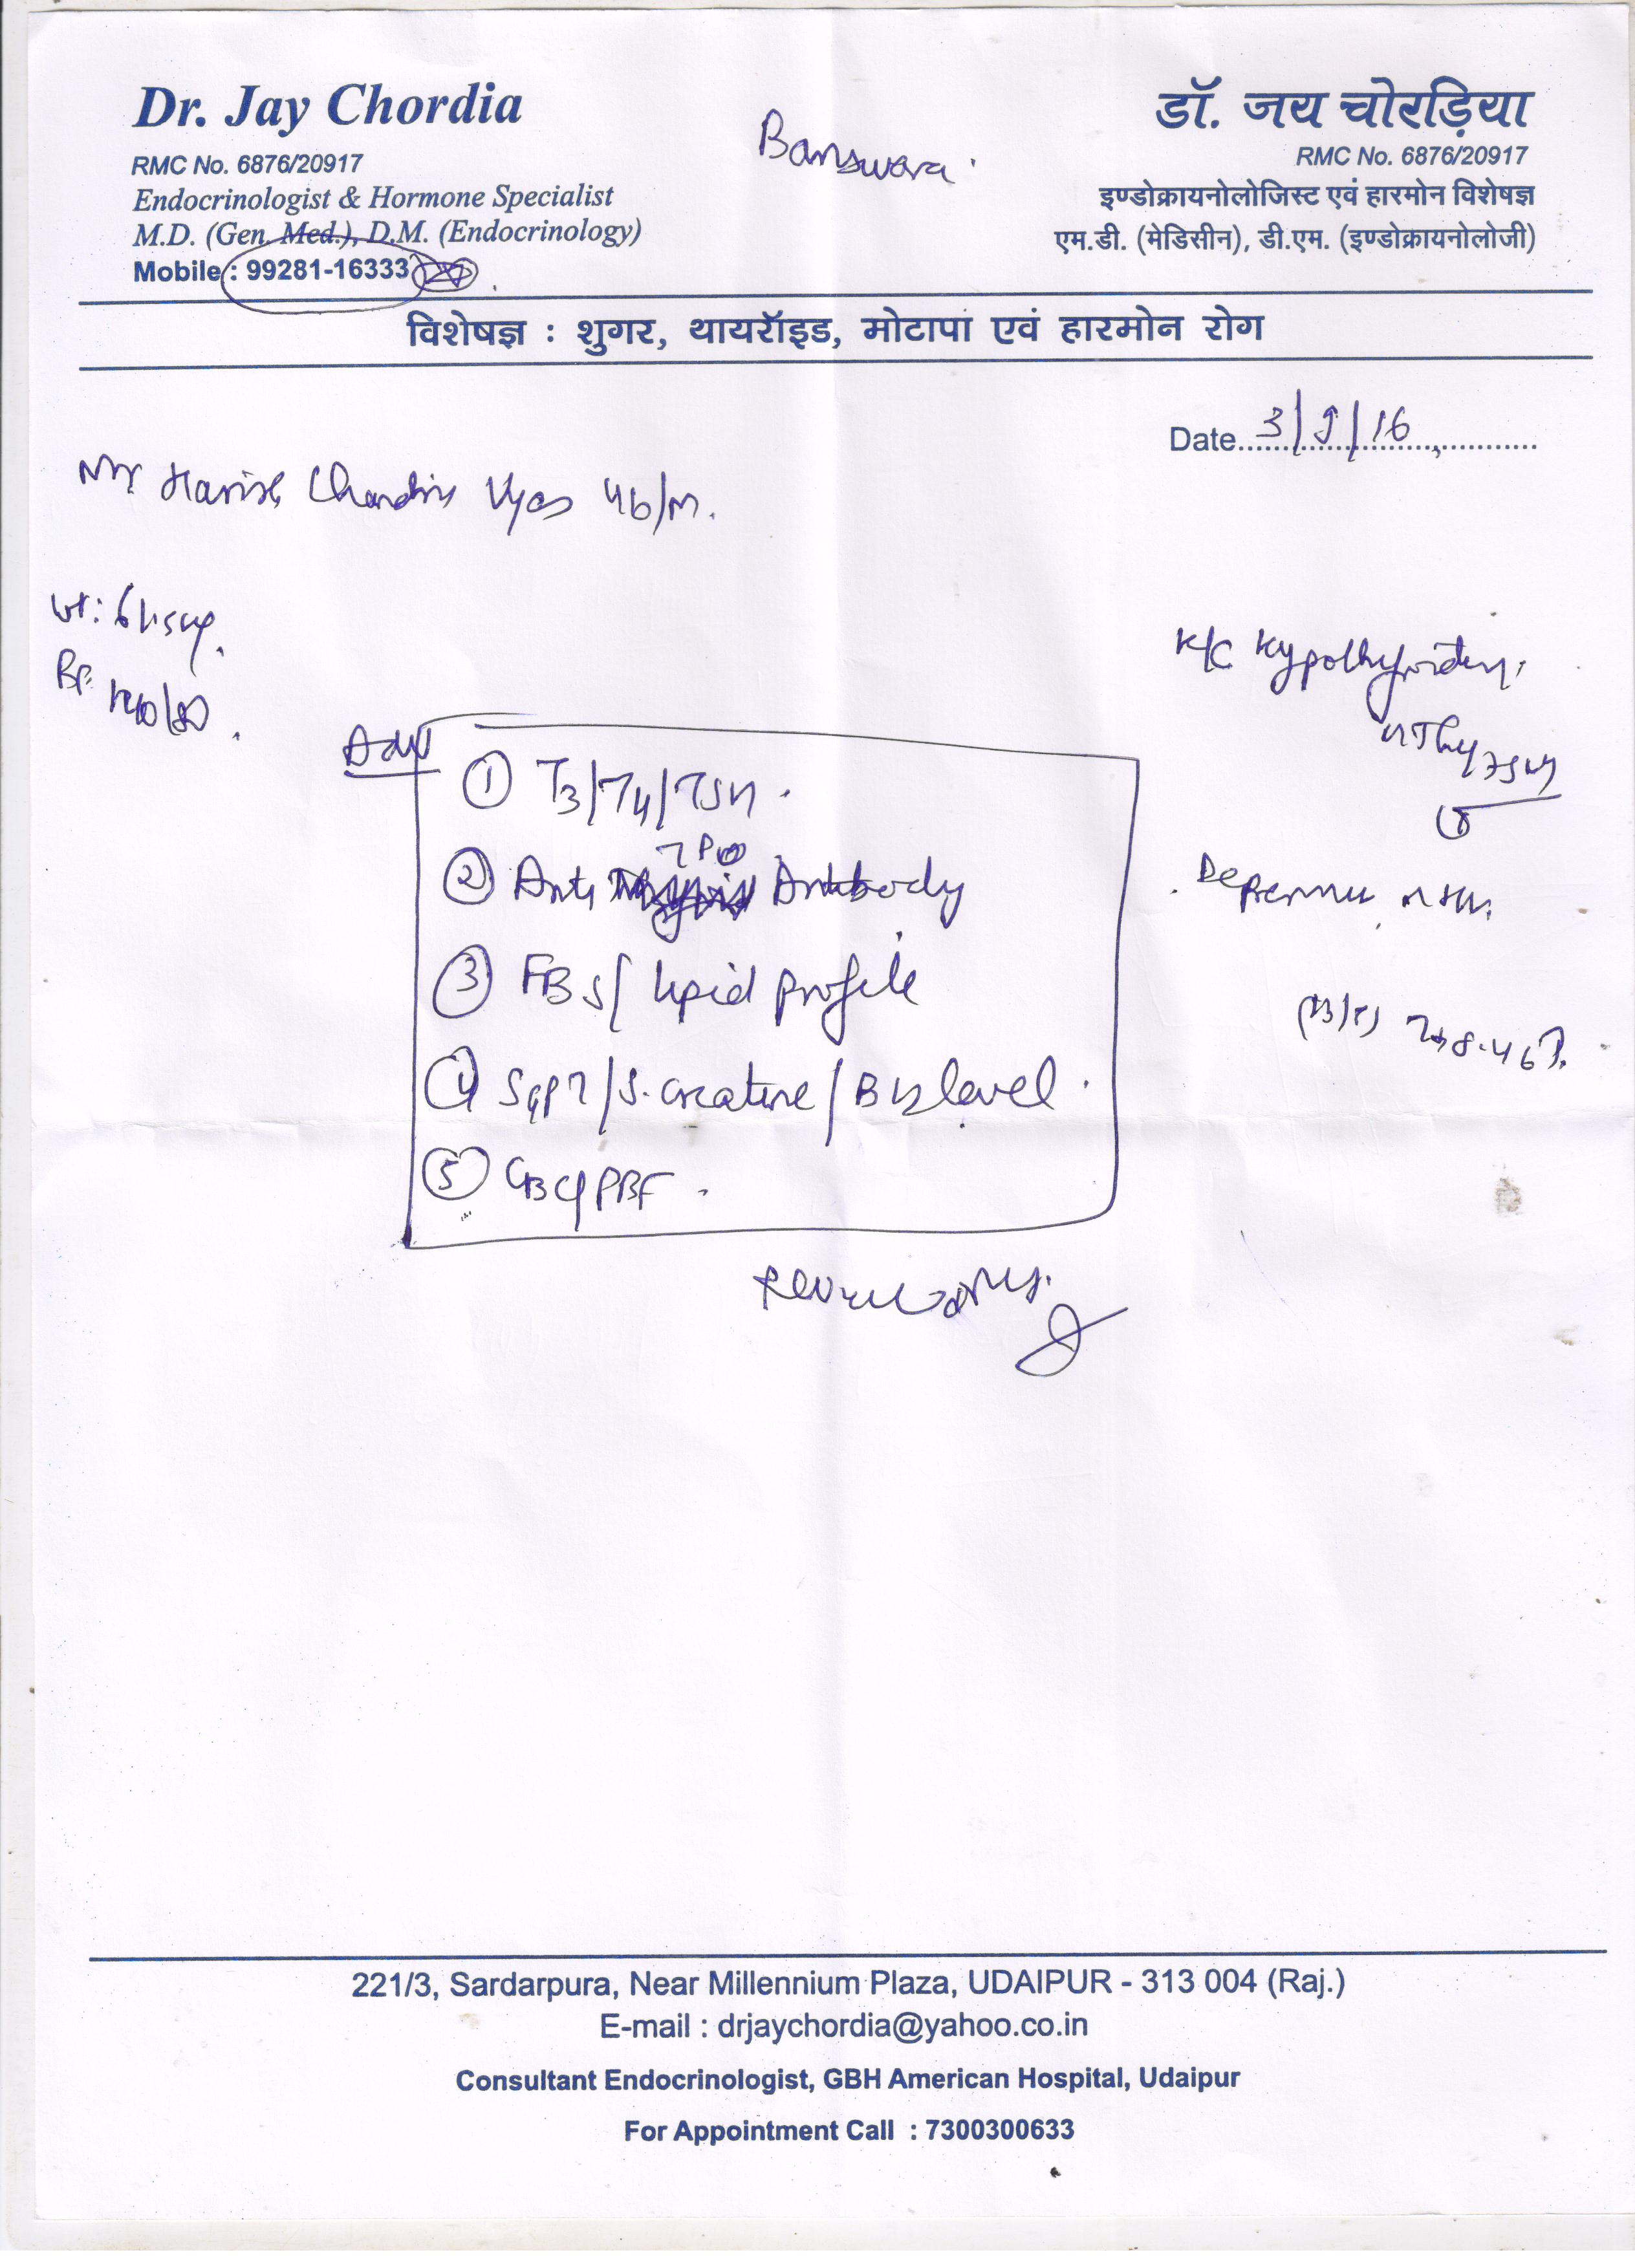 Dr. Jay Chordia
RMC No. 6876/20917
Endocrinologist & Hormone Specialist
M.D. (Gen. Med.), D.M. (Endocrinology)
Mobile : 99281-16333
Banswara
डॉ. जय चोरड़िया
RMC No. 6876/20917
इण्डोक्रायनोलोजिस्ट एवं हारमोन विशेषज्ञ
एम.डी. (मेडिसीन), डी.एम. (इण्डोक्रायनोलोजी)
विशेषज्ञ : शुगर, थायरॉइड, मोटापा एवं हारमोन रोग
Date 3/9/16
Mr Harish Chandra Vyas 46/M.
Wt:
BP: 140/80
K/C Hypothyroidism
Adv
① T3/T4/TSH.
② Anti TPO Antibody
③ FBS/ lipid profile
④ SGPT/S. creatine/B12 level.
⑤ CBC/PBF.
221/3, Sardarpura, Near Millennium Plaza, UDAIPUR - 313 004 (Raj.)
E-mail : drjaychordia@yahoo.co.in
Consultant Endocrinologist, GBH American Hospital, Udaipur
For Appointment Call : 7300300633